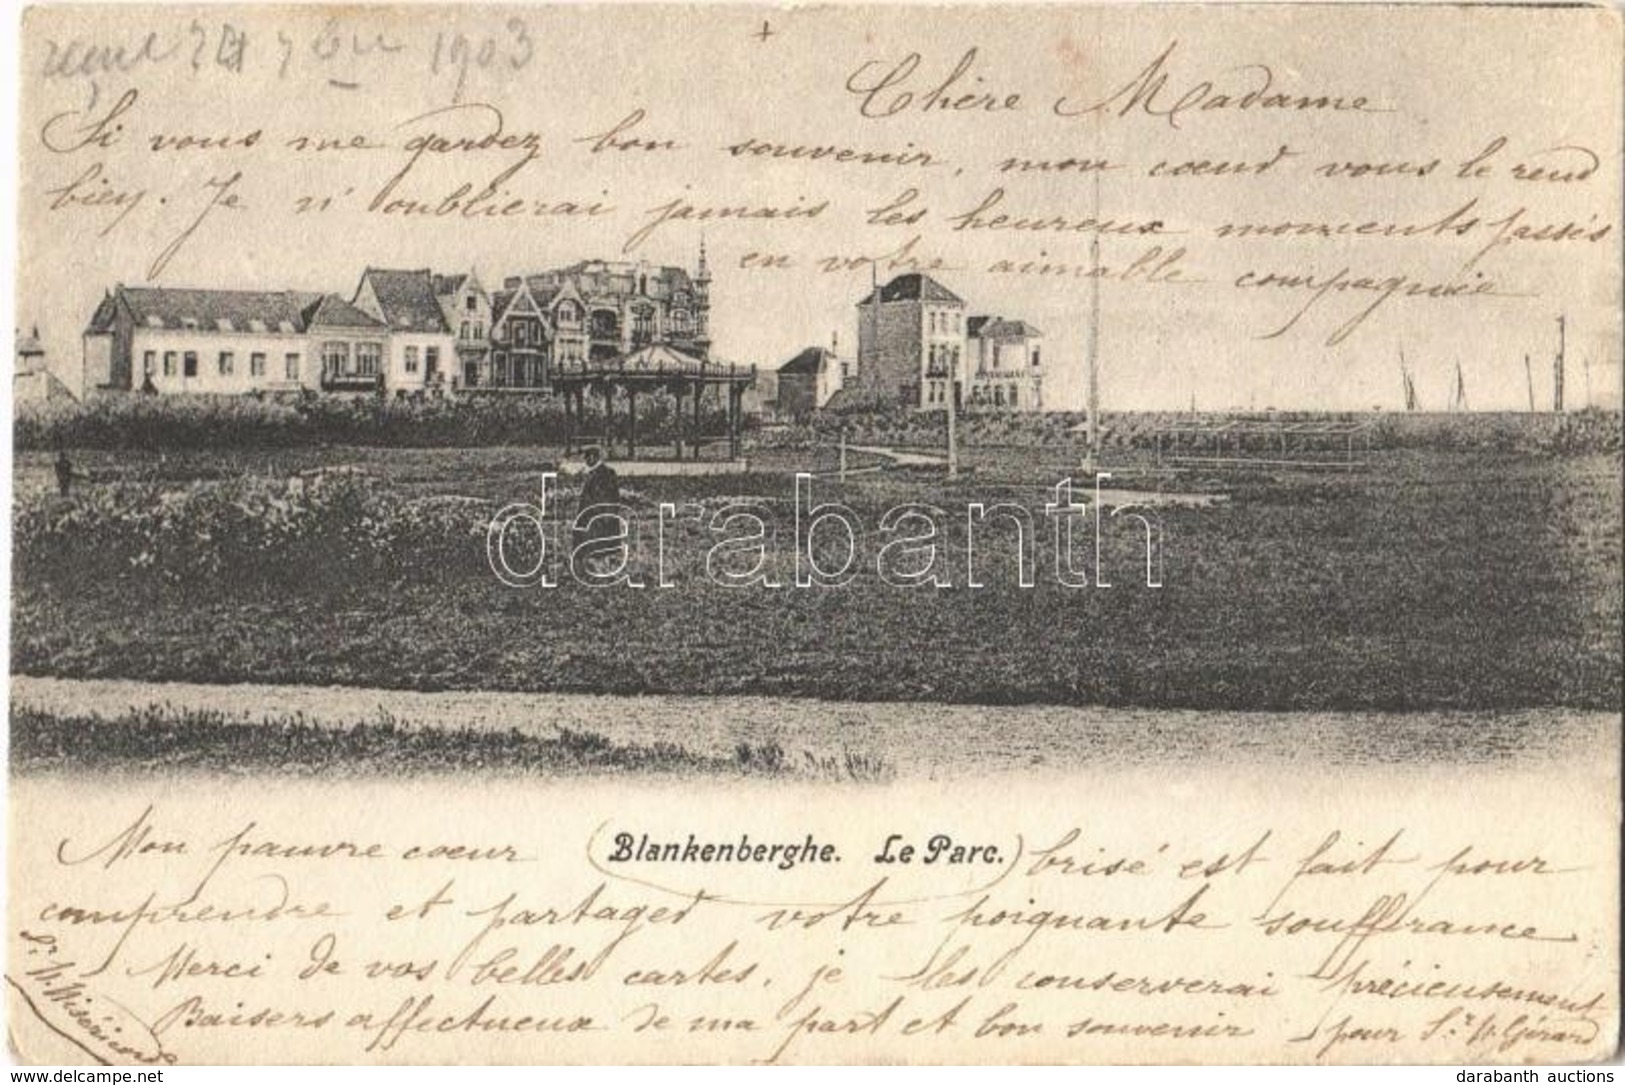 reçue 24 7bre 1903
Chère Madame
Si vous me gardez bon souvenir, mon cœur vous le rend
bien. Je n'oublierai jamais les heureux moments passés
en votre aimable compagnie
darabanth
Mon pauvre cœur (Blankenberghe. Le Parc.) brisé est fait pour
comprendre et partager votre poignante souffrance
Merci de vos belles cartes, je les conserverai précieusement
Baisers affectueux de ma part et bon souvenir pour Sr. M. Gérard
Sr. M. Miséricorde
delcampe.net
darabanth auctions